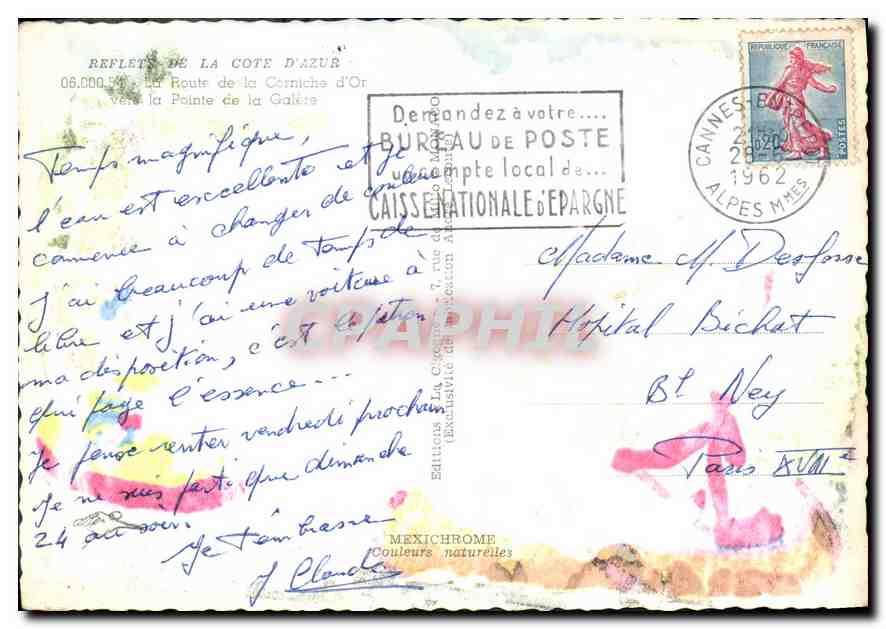 REFLETS DE LA COTE D'AZUR
06.000.54 - La Route de la Corniche d'Or
vers la Pointe de la Galère
Temps magnifique,
l'eau est excellente et je
comence à changer de couleur
j'ai beaucoup de temps de
libre et j'ai une voiture à
ma disposition, c'est le patron
qui paye l'essence...
Je pense rentrer vendredi prochain
Je ne suis parti que dimanche
24 au soir.
Je t'embrasse
J Claude
Editions "La Cigogne" 7, rue de MONACO
(Exclusivité de
MEXICHROME
Couleurs naturelles
Demandez à votre....
BUREAU DE POSTE
un compte local de...
CAISSE NATIONALE D'EPARGNE
CANNES
28-6
1962
ALPES Mmes
REPUBLIQUE FRANÇAISE
0,20
POSTES
Madame M. Desfosse
Hopital Bichat
Bd Ney
Paris XVIIIe
CPAPHIL